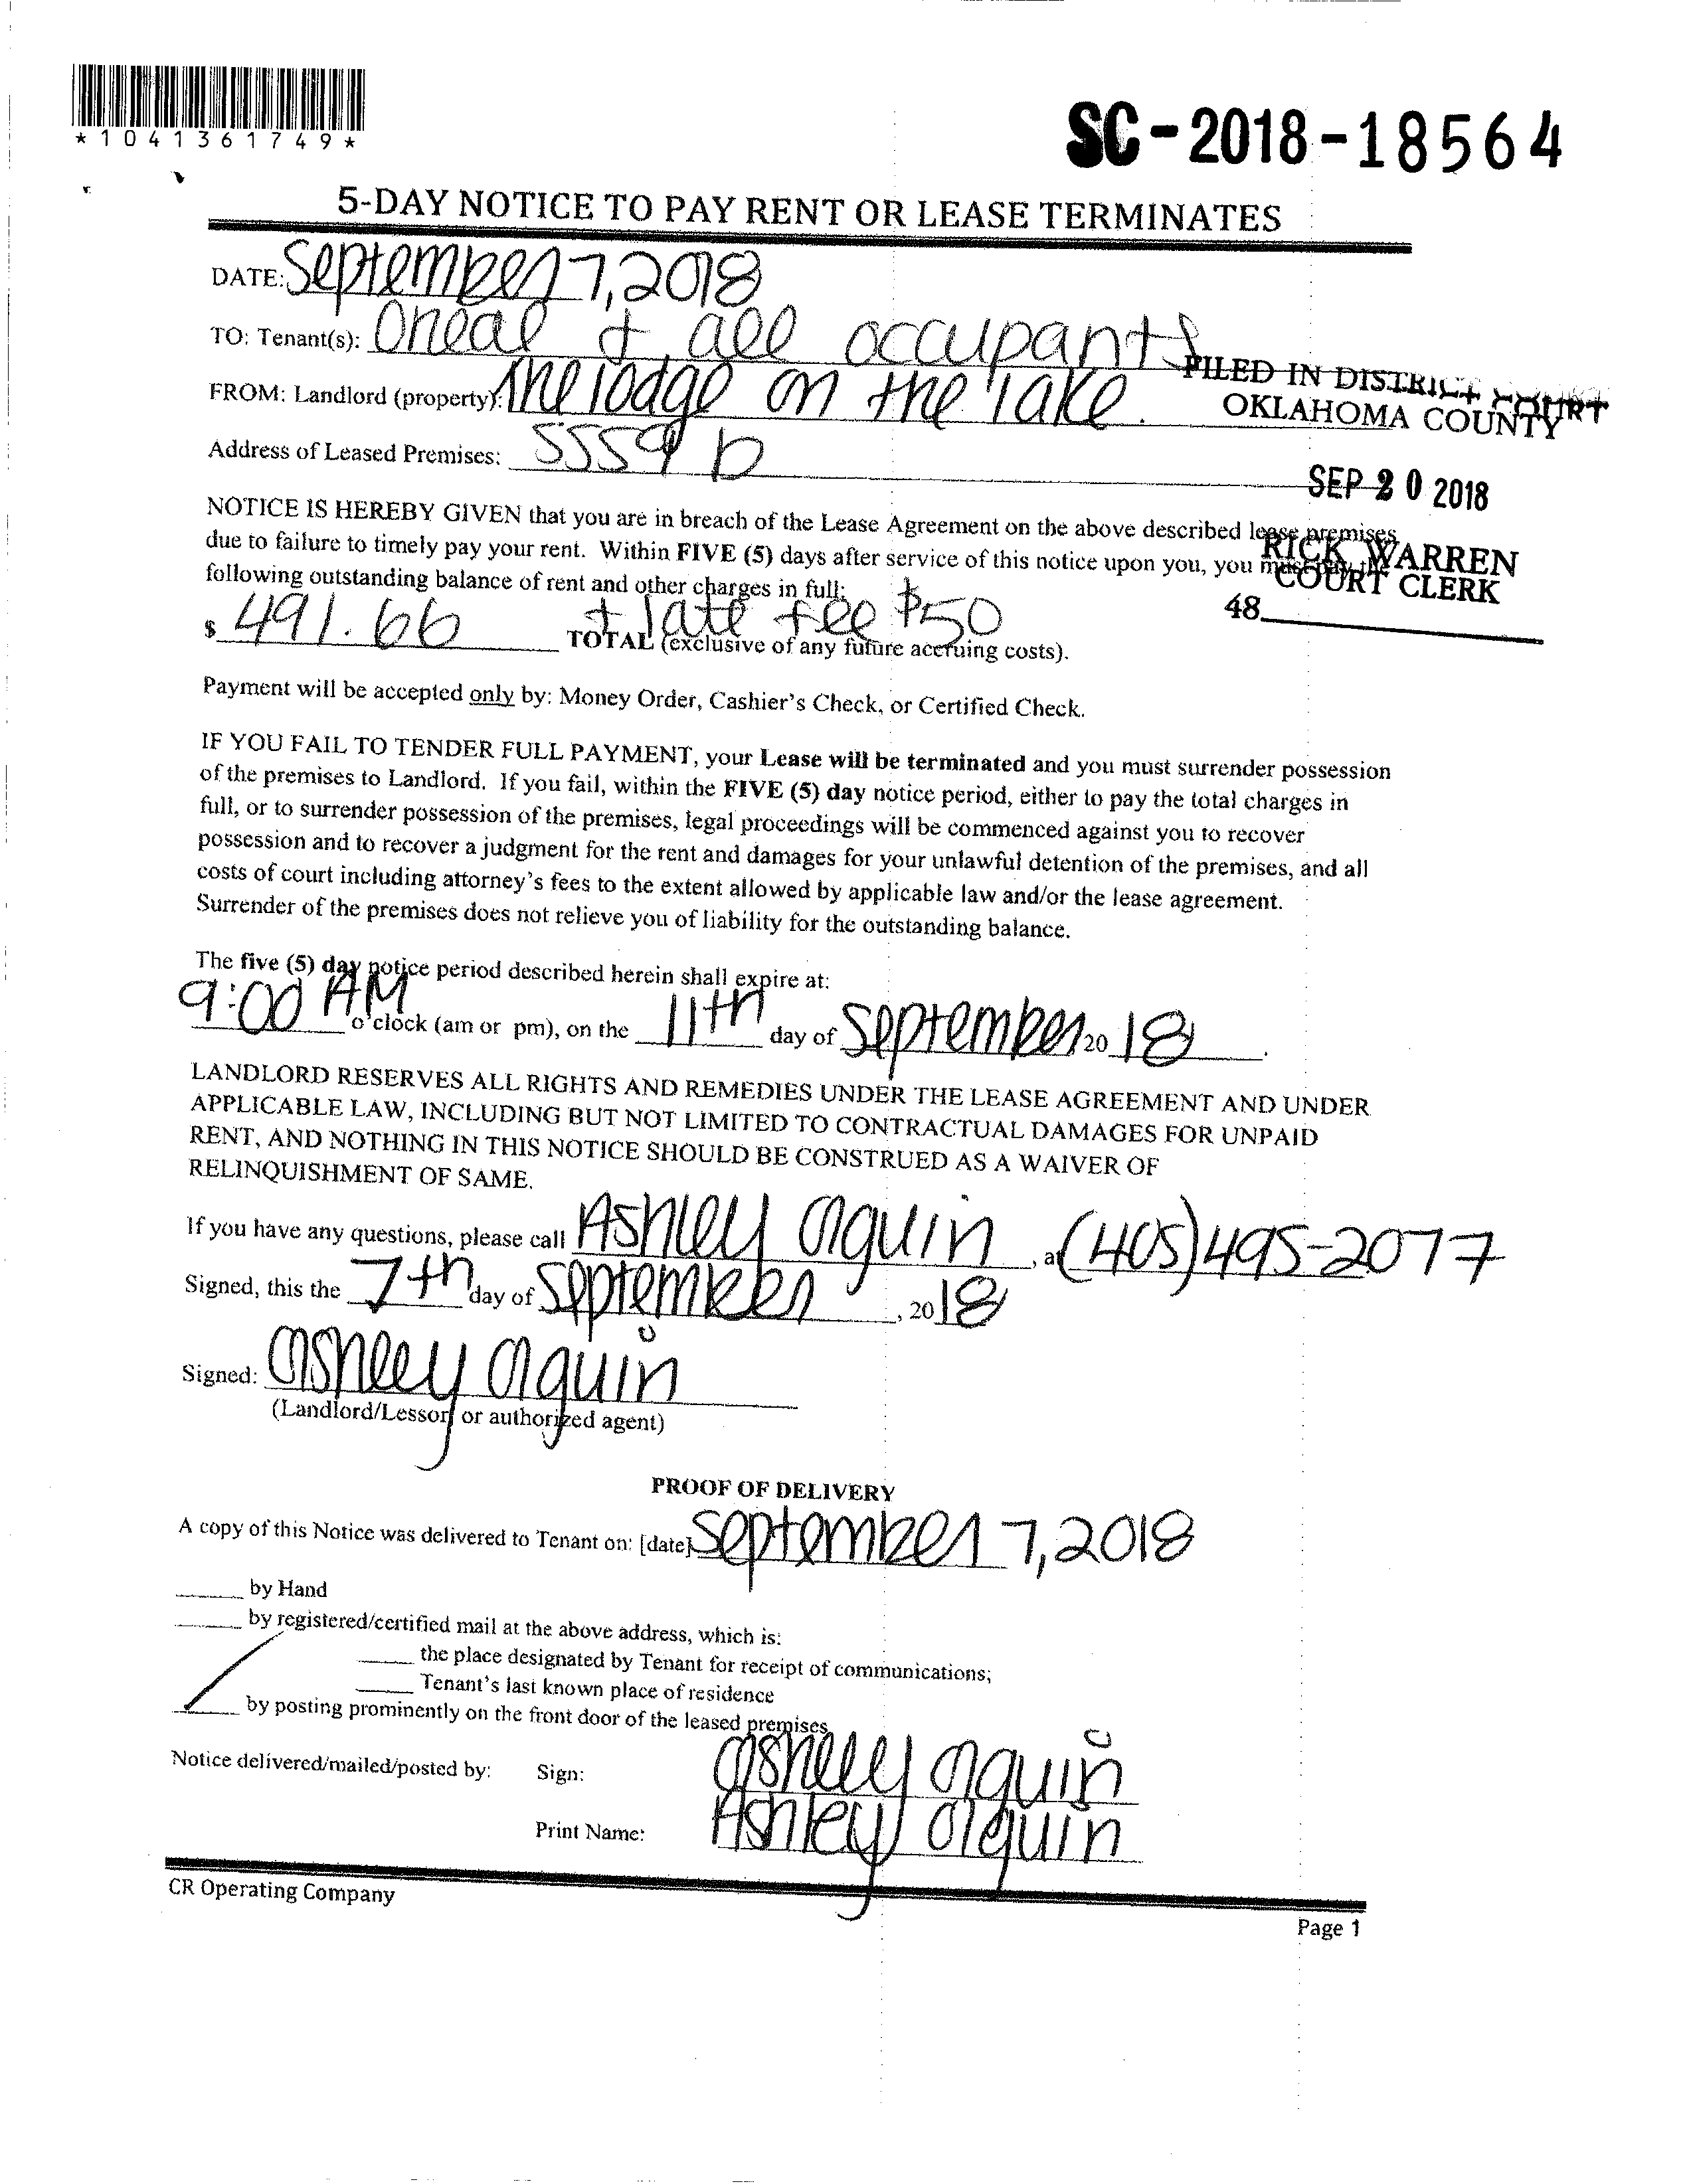 *1041361749*
SC-2018-18564
5-DAY NOTICE TO PAY RENT OR LEASE TERMINATES
DATE: September 7, 2018
TO: Tenant(s): Oneal & all occupants
FROM: Landlord (property): The lodge on the lake
FILED IN DISTRICT COURT
OKLAHOMA COUNTY
Address of Leased Premises: 5559 D
SEP 20 2018
NOTICE IS HEREBY GIVEN that you are in breach of the Lease Agreement on the above described lease premises
due to failure to timely pay your rent. Within FIVE (5) days after service of this notice upon you, you must pay the
following outstanding balance of rent and other charges in full:
RICK WARREN
COURT CLERK
48
$ 491.66 + late fee $50
TOTAL (exclusive of any future accruing costs).
Payment will be accepted only by: Money Order, Cashier's Check, or Certified Check.
IF YOU FAIL TO TENDER FULL PAYMENT, your Lease will be terminated and you must surrender possession
of the premises to Landlord. If you fail, within the FIVE (5) day notice period, either to pay the total charges in
full, or to surrender possession of the premises, legal proceedings will be commenced against you to recover
possession and to recover a judgment for the rent and damages for your unlawful detention of the premises, and all
costs of court including attorney's fees to the extent allowed by applicable law and/or the lease agreement.
Surrender of the premises does not relieve you of liability for the outstanding balance.
The five (5) day notice period described herein shall expire at:
9:00 AM o'clock (am or pm), on the 11th day of September 20 18
LANDLORD RESERVES ALL RIGHTS AND REMEDIES UNDER THE LEASE AGREEMENT AND UNDER
APPLICABLE LAW, INCLUDING BUT NOT LIMITED TO CONTRACTUAL DAMAGES FOR UNPAID
RENT, AND NOTHING IN THIS NOTICE SHOULD BE CONSTRUED AS A WAIVER OF
RELINQUISHMENT OF SAME.
If you have any questions, please call Ashley Olguin, a (405)495-2077
Signed, this the 7th day of September, 20 18
Signed: Ashley Olguin
(Landlord/Lessor, or authorized agent)
PROOF OF DELIVERY
A copy of this Notice was delivered to Tenant on: [date] September 7, 2018
by Hand
by registered/certified mail at the above address, which is:
the place designated by Tenant for receipt of communications;
Tenant's last known place of residence
by posting prominently on the front door of the leased premises
Notice delivered/mailed/posted by: Sign: Ashley Olguin
Print Name: Ashley Olguin
CR Operating Company
Page 1